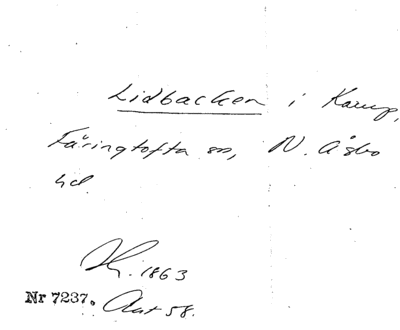 Lidbacken i Karup,
Färingtofta sn, N. Åsbo
hd.
1863
Nr 7237. Ant 58.